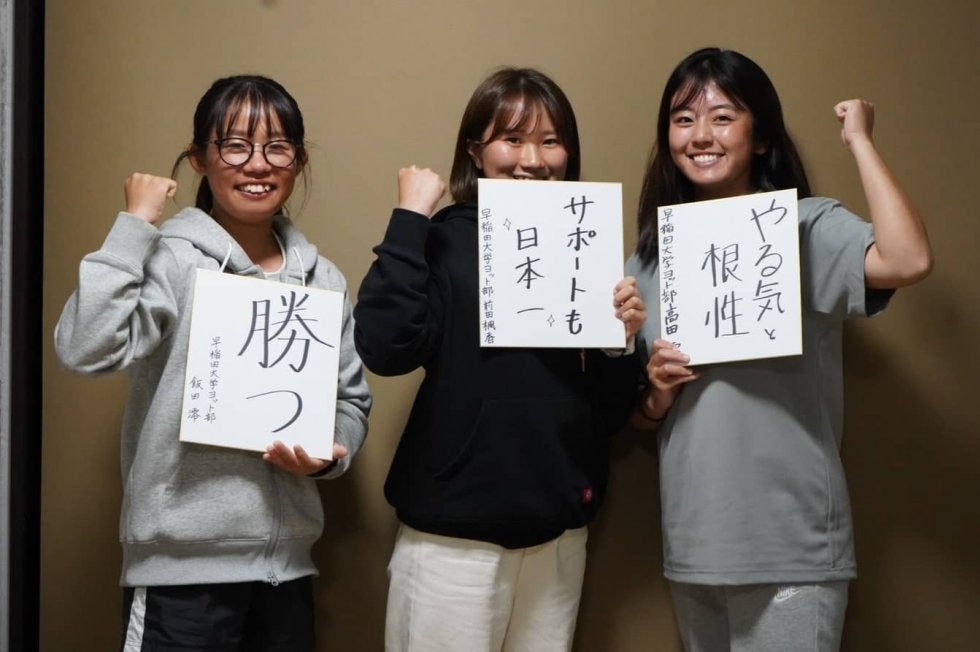 勝つ
早稲田大学ヨット部
飯田 澪
サポートも
日本一
早稲田大学ヨット部 前田楓香
やる気と
根性
早稲田大学ヨット部 高田
NIKE